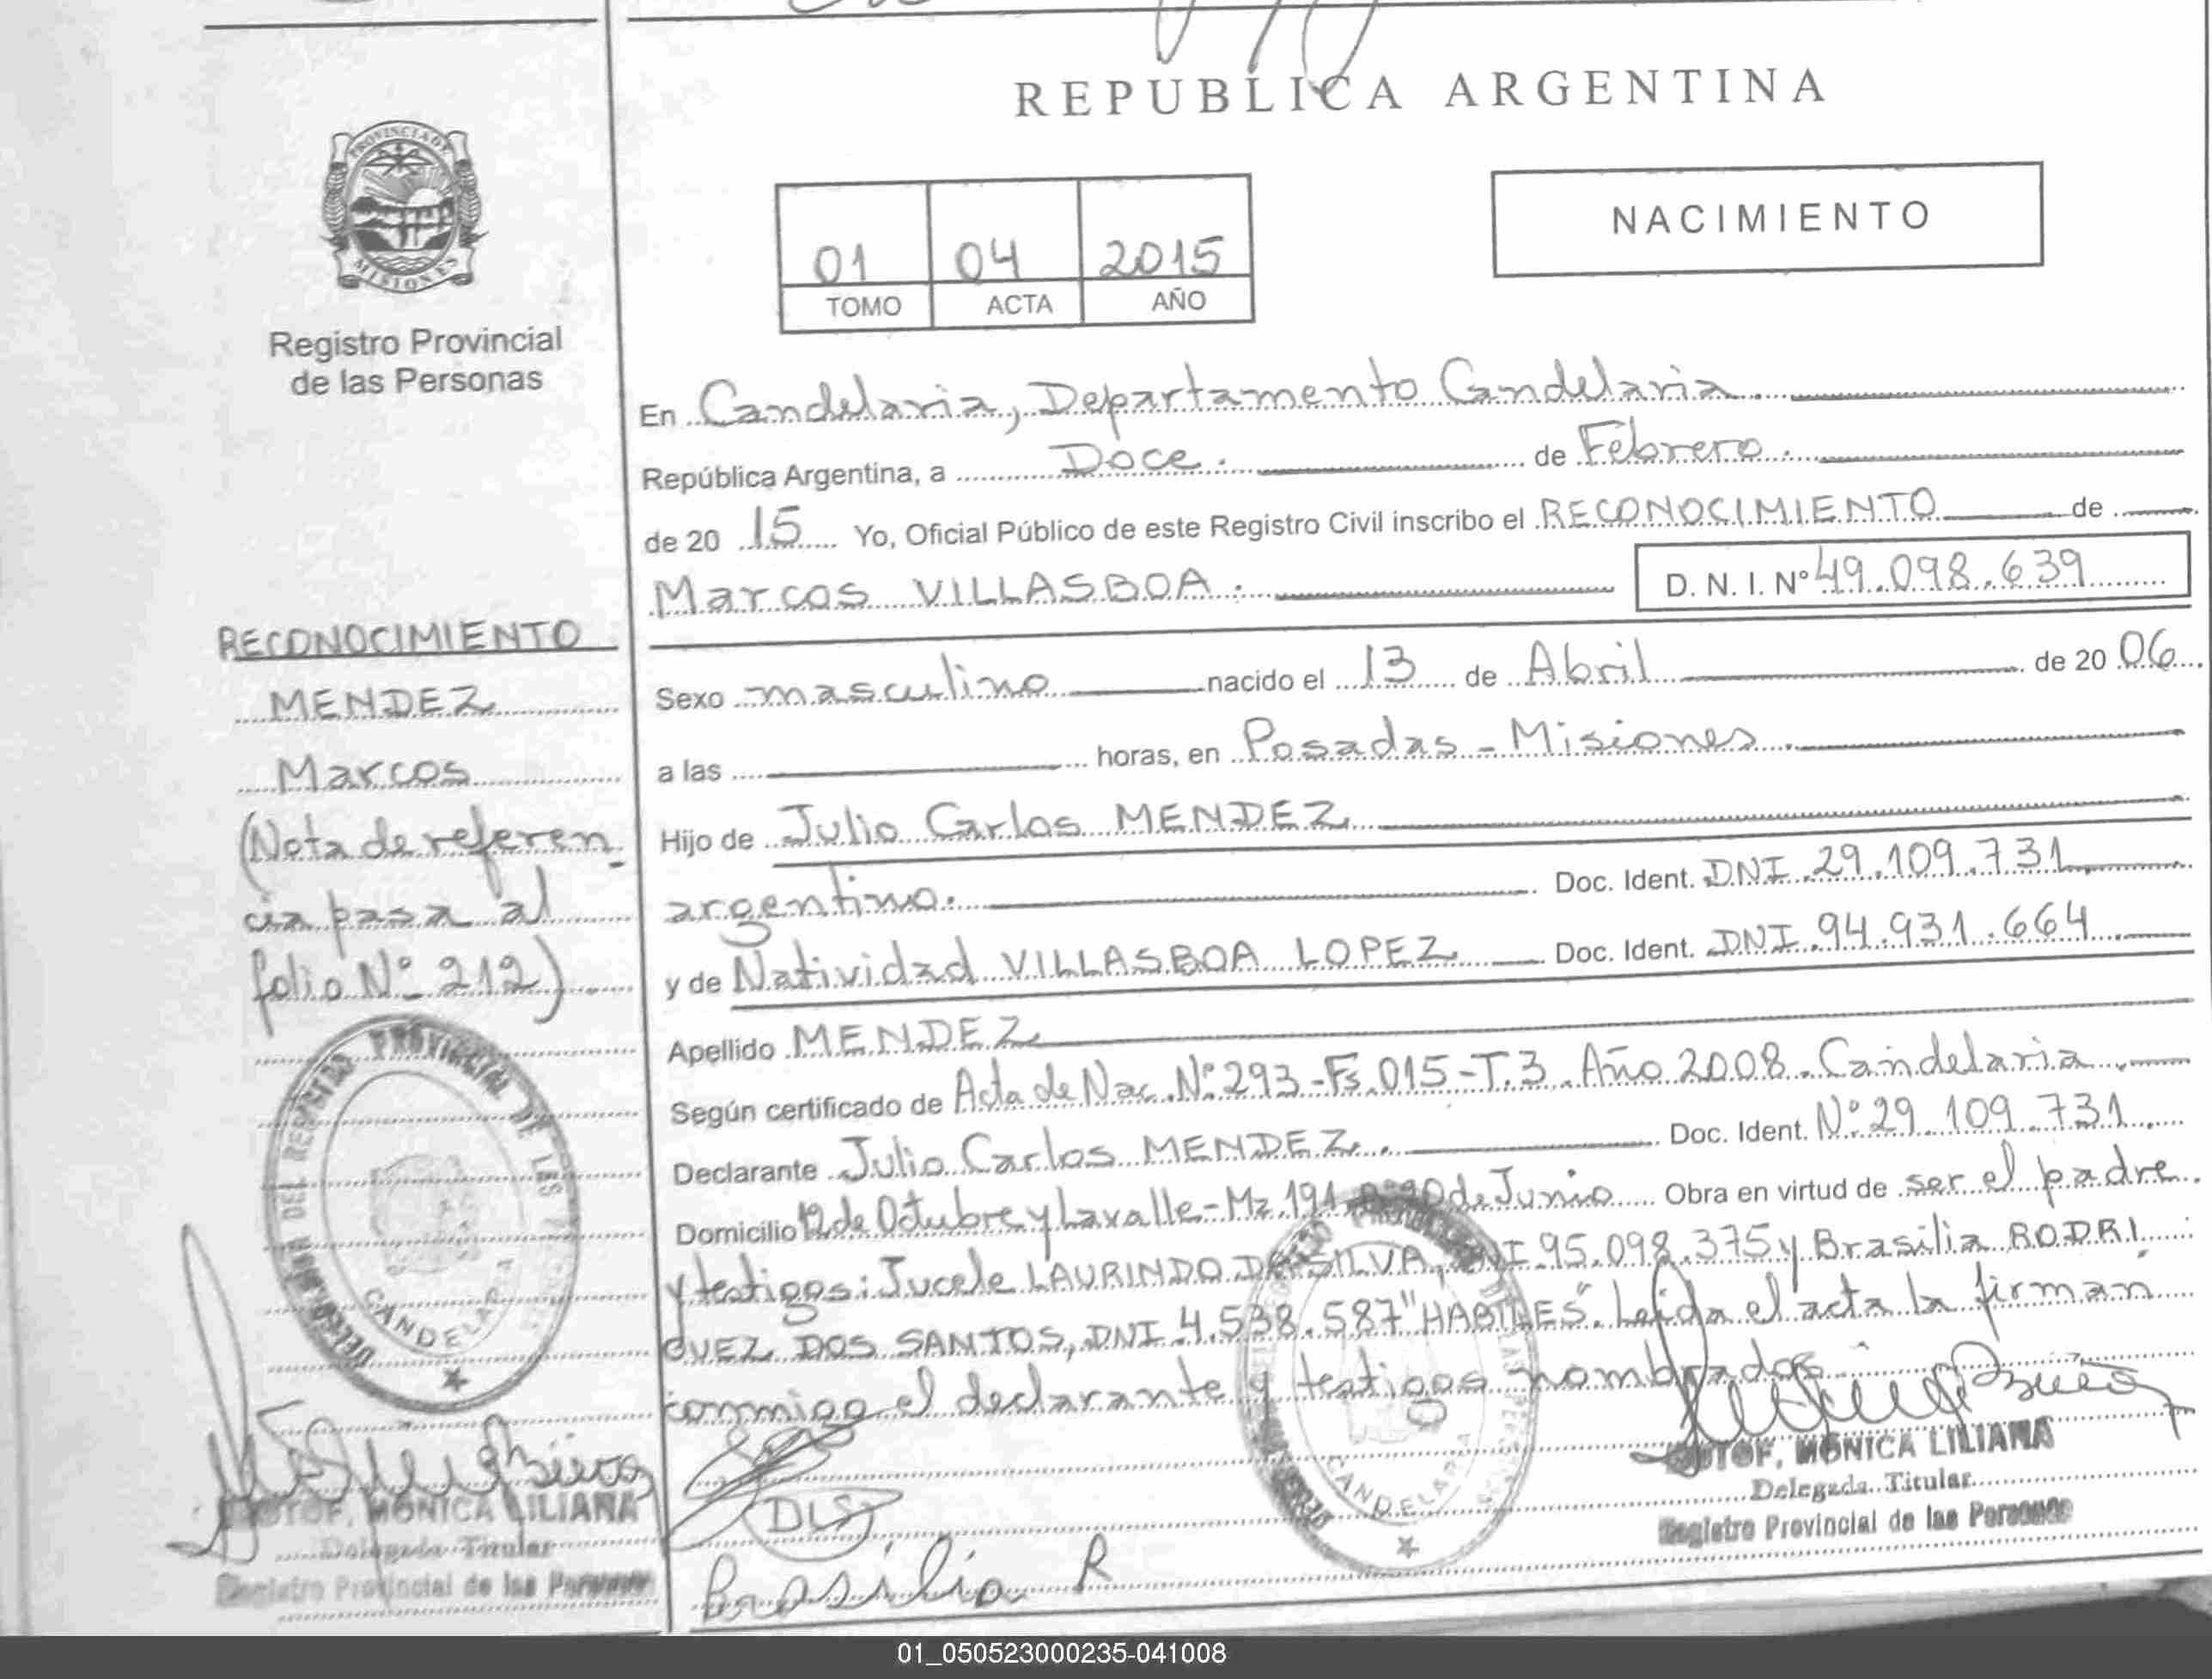 REPUBLICA ARGENTINA
PROVINCIA DE
MISIONES
Registro Provincial
de las Personas
01 04 2015
TOMO ACTA AÑO
NACIMIENTO
En Candelaria, Departamento Candelaria.
República Argentina, a Doce. de Febrero.
de 20 15 Yo, Oficial Público de este Registro Civil inscribo el RECONOCIMIENTO de
Marcos VILLASBOA. D. N. I. Nº 49.098.639
Sexo masculino nacido el 13 de Abril de 20 06
a las horas, en Posadas - Misiones.
Hijo de Julio Carlos MENDEZ
argentino. Doc. Ident. DNI.29.109.731
y de Natividad VILLASBOA LOPEZ Doc. Ident. DNI.94.931.664
Apellido MENDEZ
Según certificado de Acta de Nac. Nº 293-Fs.015-T.3. Año 2008. Candelaria.
Declarante Julio Carlos MENDEZ. Doc. Ident. Nº 29.109.731
Domicilio 12 de Octubre y Lavalle - Mz.191 de Junio Obra en virtud de ser el padre
y testigos: Jucele LAURINDO DA SILVA, DNI 95.098.375 y Brasilia RODRI
GUEZ DOS SANTOS, DNI 4.538.587 "HABILES". Leída el acta la firman
conmigo el declarante y testigos nombrados.
DLS
Brasilia R
MONICA LILIANA
Delegada Titular
Registro Provincial de las Personas
RECONOCIMIENTO
MENDEZ
Marcos
(Nota de referen
cia pasa al
folio Nº 212)
PROVINCIAL DE LAS
CANDELARIA
MONICA LILIANA
Delegada Titular
Registro Provincial de las Personas
CANDELARIA
01_050523000235-041008